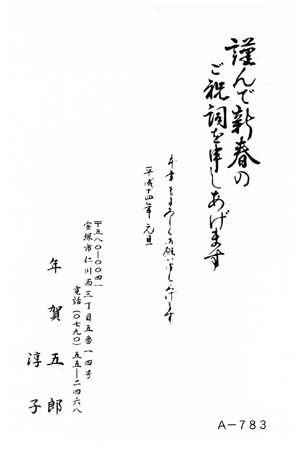 謹んで新春の
ご祝詞を申しあげます
本年もよろしくお願い申し上げます
平成十四年 元旦
〒五八〇―〇〇四一
宝塚市仁川西三丁目五番一四号
電話(〇七九〇)五五―二四六八
年賀五郎
淳子
A-783